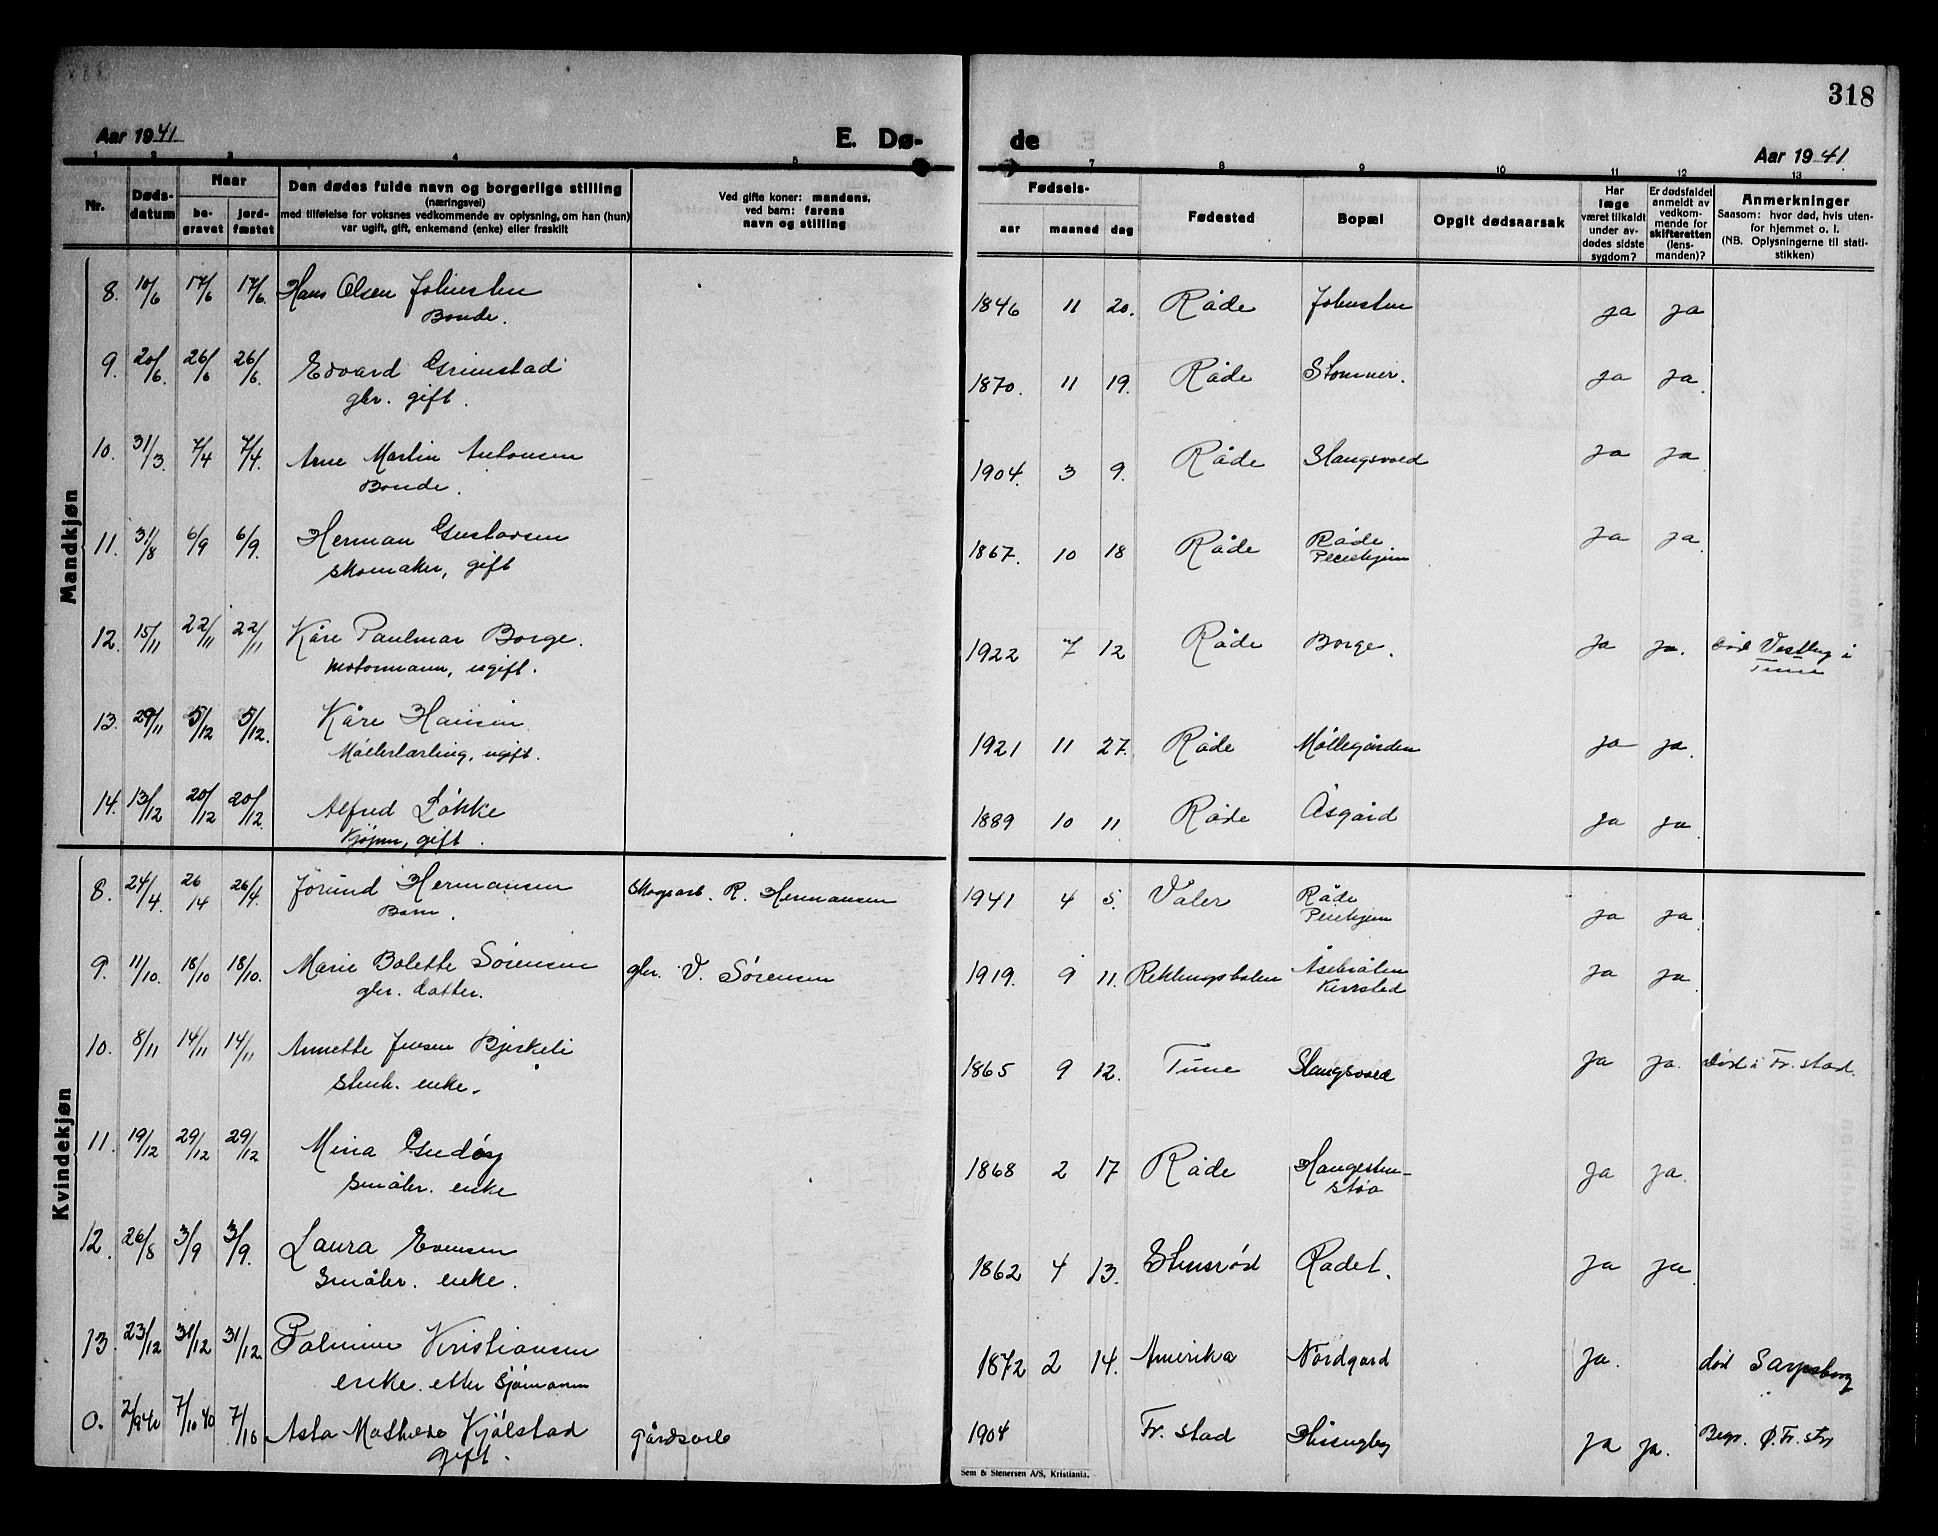 318
Aar 1941 E. Dø- de Aar 1941
1 2 3 4 5 7 8 9 10 11 12 13
Nr.
Døds-
datum
Naar
be-
gravet
jord-
fæstet
Den dødes fulde navn og borgerlige stilling
(næringsvei)
med tilføielse for voksnes vedkommende av oplysning, om han (hun)
var ugift, gift, enkemand (enke) eller fraskilt
Ved gifte koner: mandens,
ved barn: farens
navn og stilling
Fødsels-
aar maaned dag
Fødested
Bopæl
Opgit dødsaarsak
Har
læge
været tilkaldt
under av-
dødes sidste
sygdom?
Er dødsfaldet
anmeldt av
vedkom-
mende for
skifteretten
(lens-
manden)?
Anmerkninger
Saasom: hvor død, hvis uten-
for hjemmet o. l.
(NB. Oplysningerne til stati-
stikken)
Mandkjøn
8. 10/6 17/6 17/6. Hans Olsen Johnsten 1846 11 20. Råde Johnsten ja ja
Bonde.
9. 20/6. 26/6 26/6. Edvard Grimstad 1870. 11 19. Råde Stomner. ja ja
gbr. gift.
10. 31/3. 7/4 7/4. Arne Martin Antonsen 1904. 3 9. Råde Slangsvold ja ja
Bonde.
11. 31/8 6/9 6/9. Herman Gustavsen 1867. 10 18 Råde Råde ja ja
skomaker, gift Pleiehjem
12. 15/11 22/11 22/11 Kåre Paulmar Borge. 1922 7 12 Råde Borge. ja ja. død Vestby i
motormann, ugift. Tune
13. 29/11 5/12 5/12. Kåre Hansen 1921 11 27. Råde Möllegården ja ja
Möllerlærling, ugift.
14. 13/12 20/12 20/12. Alfred Løkke 1889 10 11 Råde Åsgård ja ja
gift.
Kvindekjøn
8. 24/4. 26/4 26/4. Jorund Hermansen Skogsarb. R. Hermansen 1941 4 5. Våler Råde ja ja
Barn. Pleiehjem
9. 11/10. 18/10 18/10. Marie Bolette Sörensen gbr. V. Sörensen 1919. 9 11. Åsebråten ja ja
gbr. datter. Karrstad
10. 8/11 14/11 14/11 Annette Jensen Bjerkeli 1865 9 12. Tune Slangsvold ja ja. död i Fr. stad.
enke.
11. 19/12 29/12 29/12 Mina Gudøy 1868 2 17 Råde Haugesten- ja ja
Småbr. enke støa
12. 26/8 3/9 3/9. Laura Evensen 1862 4 13. Stensrød Rådet. ja ja
Småbr. enke.
13. 23/12 31/12 31/12. Palmine Kristiansen 1872 2 14. Amerika Nordgård ja. död Sarpsborg
enke etter Sjömann
0. 2/9 40 7/10 40 7/10 Asta Mathilde Kjölstad gårdseier 1904 Fr. stad Missingby ja ja. Begr. Ø. Fr. std
gift.
Sem & Stenersen A/S, Kristiania.